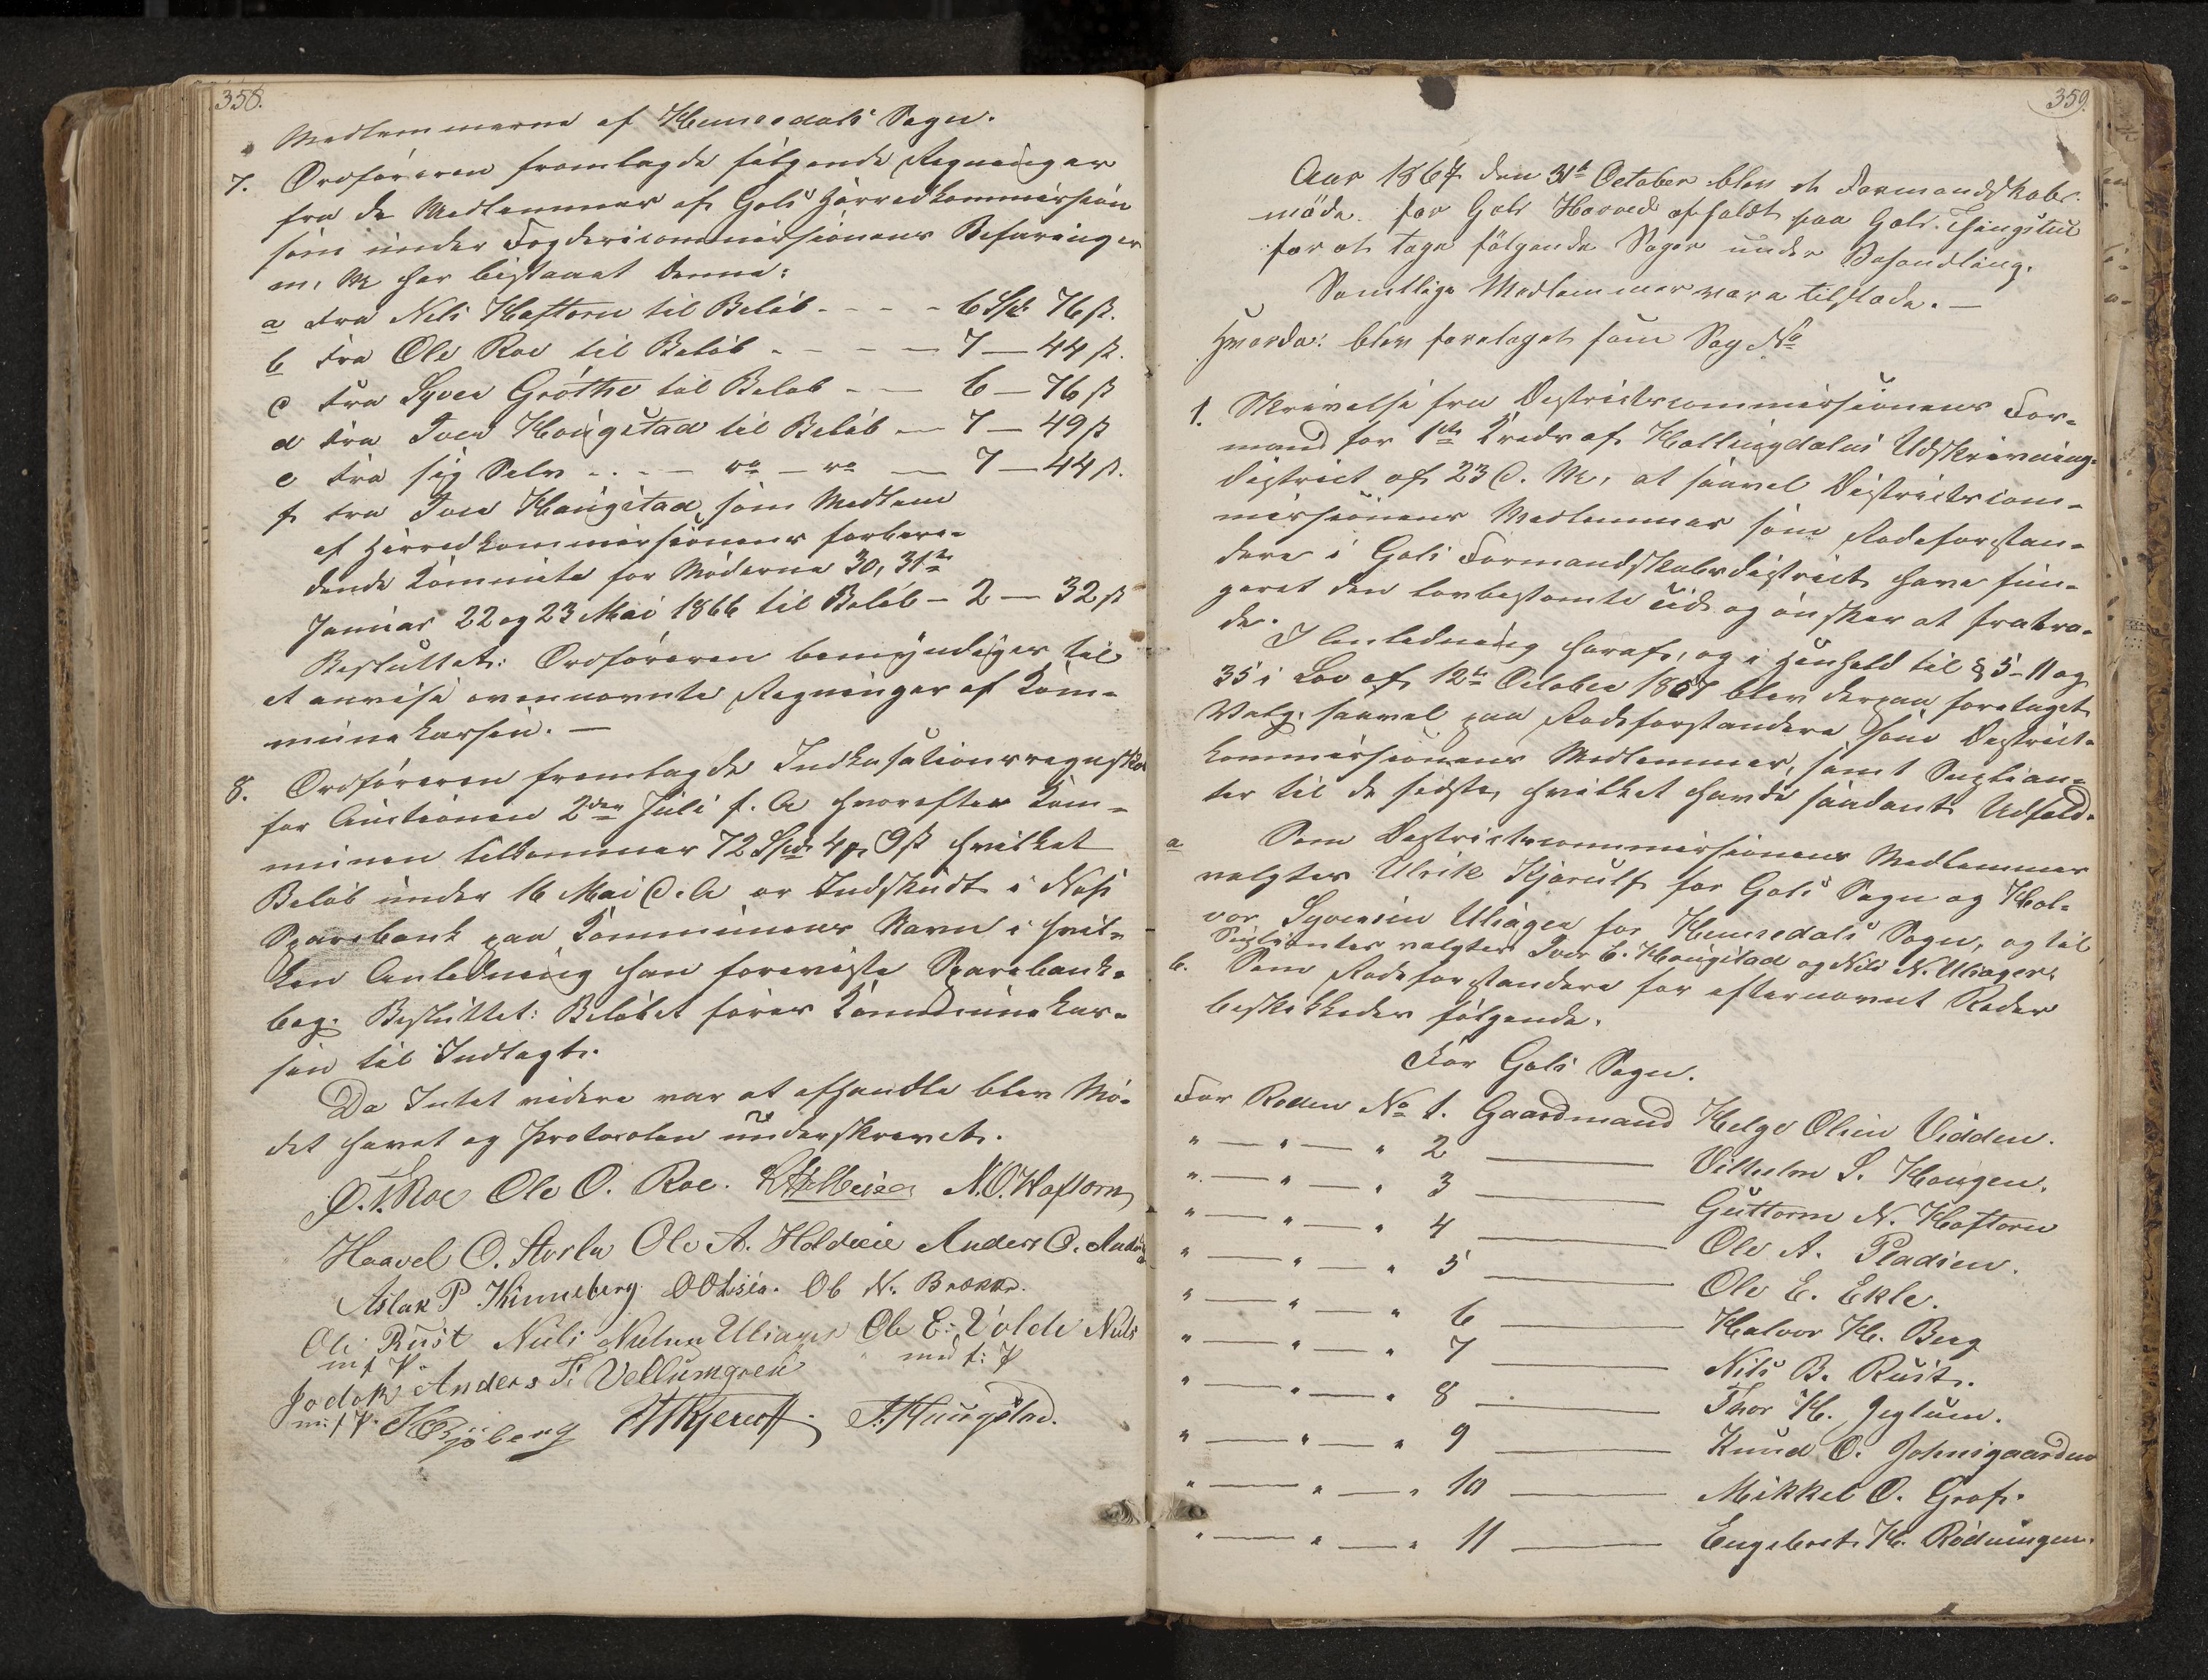 358.
Medlemmerne af Hemsedals Sogn.
7. Ordføreren fremlagde følgende Regninger
fra de Medlemmer af Gols Herredkommission
som under Fogdericommissionens Befaringer
m. M har bistaaet denne:
a Fra Nils Heftorn til Beløb - - - - 6 Spd 76 ß.
b Fra Ole Roe til Beløb - - - - 7 — 44 ß.
c Fra Syver Grøthe til Beløb - - 6 — 76 ß
d Fra Iver Hougstad til Beløb — 7 — 49 ß
e Fra sig Selv - . - — do — do — 7 — 44 ß.
f Fra Iver Haugstad, som Medlem
af Herredkommissionens forbere-
dende Kommite for Møderne 30, 31te
Januar 22 og 23 Mai 1866 til Beløb - 2 — 32 ß
Besluttet: Ordføreren bemyndiges til
at anvise ovennævnte Regninger af Kom-
munekassen. —
8. Ordføreren fremlagde
for Auctionen 2den Juli f. A hvorefter Kom-
munen tilkommer 72 Spd 4 9 ß hvilket
Beløb under 16 Mai d. A er Indskudt i Næs
Sparebank paa Kommunens Navn i hvil-
ken Anledning han foreviste Sparebank-
bog. Besluttet: Beløbet føres Kommunekas-
sen til Indtægt.
Da Intet videre var at afhandle blev Mø-
det hævet og Protocolen underskrevet.
Roe Ole O. Roe. N. O. Heftorn
Haavel O. Storla Ole A. Anders O.
Aslak P Kinneberg OOlsen. Ob N. Brække.
Ole Rust Nils Nielsen Uliager Ole E: Volde Nils
m f P. med f: P
Jodok Anders T: Vellumgren
m: f P. KBjøberg Kjerulf. I. Haugstad.
359.
Aar 1867 den 31te October blev et Formandskabs-
møde for Gols Herred afholdt paa Gols Thingstue
for at tage følgende Sager under Behandling.
Samtlige Medlemmer vare tilstæde. —
Hvorda: blev foretaget som Sag No
1. Skrivelse fra Districtscommissionens For-
mand for 1ste Kreds af Hallingdalens Udskrivnings-
district af 23 d. M., at saavel Districtscom-
missionens Medlemmer som Rodeforstan-
dere i Gols Formandskabsdistrict have fun-
geret den lovbestemte Tid og ønsker at fratræ-
de.
I Anledning heraf, og i Henhold til § 5 - 11 og
35 i Lov af 12te October 1857 blev derpaa foretaget
Valg, saavel paa Rodeforstandere som District-
kommissionens Medlemmer, samt Supplean-
ter til de sidste, hvilket havde saadant Udfald.
a Som Districtscommissionens Medlemmer
valgtes Ulrik Kjerulf for Gols Sogn og Hal-
vor Syversen Uliager for Hemsedals Sogn, og til
Suplienter valgtes Iver E. Hougstad og Nils N. Uliager.
b. Som Rodeforstandere for efternævnt Roder
beskikkedes følgende.
For Gols Sogn.
For Roden No 1. Gaardmand Helge Olsen Vidden.
" — " — " 2 — Vilhelm S. Hougen.
" — " — " 3 — Guttorm N. Heftorn
" — " — " 4 — Ole A. Pladsen.
" — " — " 5 — Ole E. Ekle.
" — " — " 6 — Halvor H. Berg
" — " — " 7 — Nils B. Rust.
" — " — " 8 — Thor H. Jeglum.
" — " — " 9 — Knud O. Johnsgaarden
" — " — " 10 — Mikkel O. Grøf.
" — " — " 11 — Engebret H. Rødningen.